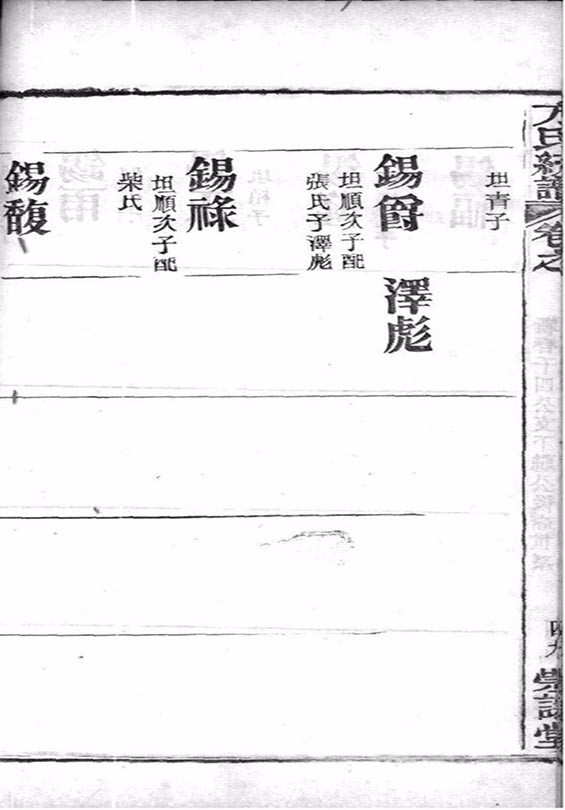 方氏統譜 卷之
四九
坦青子
錫爵 澤彪
坦順次子配
張氏子澤彪
錫祿
坦順次子配
柴氏
錫馥